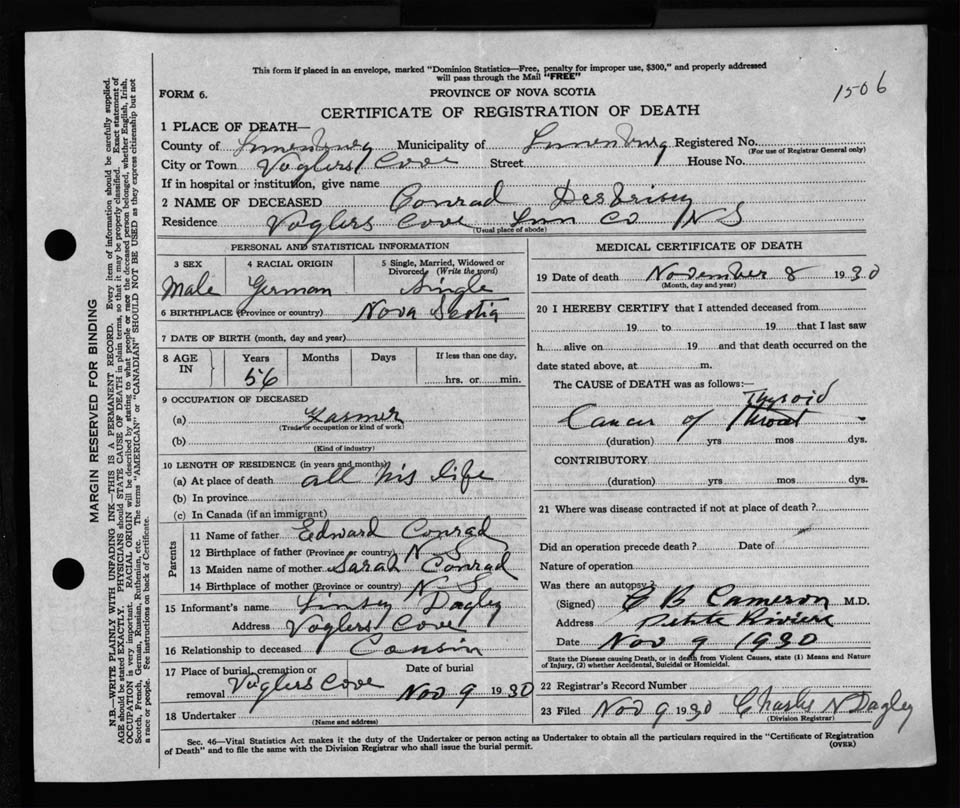 This form if placed in an envelope, marked "Dominion Statistics—Free, penalty for improper use, $300," and properly addressed
will pass through the Mail "FREE"
1506
FORM 6.
PROVINCE OF NOVA SCOTIA
CERTIFICATE OF REGISTRATION OF DEATH
1 PLACE OF DEATH—
County of Lunenburg Municipality of Lunenburg Registered No.
(For use of Registrar General only)
City or Town Voglers Cove Street House No.
If in hospital or institution, give name
2 NAME OF DECEASED Conrad DesBrisay
Residence Voglers Cove Lun Co N S
(Usual place of abode)
PERSONAL AND STATISTICAL INFORMATION
3 SEX 4 RACIAL ORIGIN 5 Single, Married, Widowed or Divorced (Write the word)
Male German Single
6 BIRTHPLACE (Province or country) Nova Scotia
7 DATE OF BIRTH (month, day and year)
8 AGE IN Years Months Days If less than one day,
56 hrs. or min.
9 OCCUPATION OF DECEASED
(a) Farmer
(Trade or occupation or kind of work)
(b)
(Kind of industry)
10 LENGTH OF RESIDENCE (in years and months)
(a) At place of death all his life
(b) In province
(c) In Canada (if an immigrant)
Parents
11 Name of father Edward Conrad
12 Birthplace of father (Province or country) N S
13 Maiden name of mother Sarah Conrad
14 Birthplace of mother (Province or country) N S
15 Informant's name Dagley
Address Voglers Cove
16 Relationship to deceased Cousin
17 Place of burial, cremation or removal Voglers Cove
Date of burial
Nov 9 1930
18 Undertaker
(Name and address)
MEDICAL CERTIFICATE OF DEATH
19 Date of death November 8 1930
(Month, day and year)
20 I HEREBY CERTIFY that I attended deceased from
19 to 19 that I last saw
h alive on 19 and that death occurred on the
date stated above, at m.
The CAUSE of DEATH was as follows:—
Thyroid
Cancer of Throat
(duration) yrs mos dys.
CONTRIBUTORY
(duration) yrs mos dys.
21 Where was disease contracted if not at place of death?
Did an operation precede death? Date of
Nature of operation
Was there an autopsy?
(Signed) B Cameron M.D.
Address Petite Riviere
Date Nov 9 1930
State the Disease causing Death, or in death from Violent Causes, state (1) Means and Nature
of Injury, (2) whether Accidental, Suicidal or Homicidal.
22 Registrar's Record Number
23 Filed Nov 9 1930 Charles N Dagley
(Division Registrar)
Sec. 46—Vital Statistics Act makes it the duty of the Undertaker or person acting as Undertaker to obtain all the particulars required in the "Certificate of Registration
of Death" and to file the same with the Division Registrar who shall issue the burial permit.
(OVER)
MARGIN RESERVED FOR BINDING
N.B.—WRITE PLAINLY WITH UNFADING INK—THIS IS A PERMANENT RECORD. Every item of information should be carefully supplied.
AGE should be stated EXACTLY. PHYSICIANS should STATE CAUSE OF DEATH in plain terms, so that it may be properly classified. Exact statement of
OCCUPATION is very important. RACIAL ORIGIN will be described by stating to what people or race the deceased person belonged, whether English, Irish,
Scotch, French, German, Russian, Ruthenian, etc. The terms "AMERICAN" or "CANADIAN" SHOULD NOT BE USED as they express citizenship but not
a race or people. See instructions on back of Certificate.